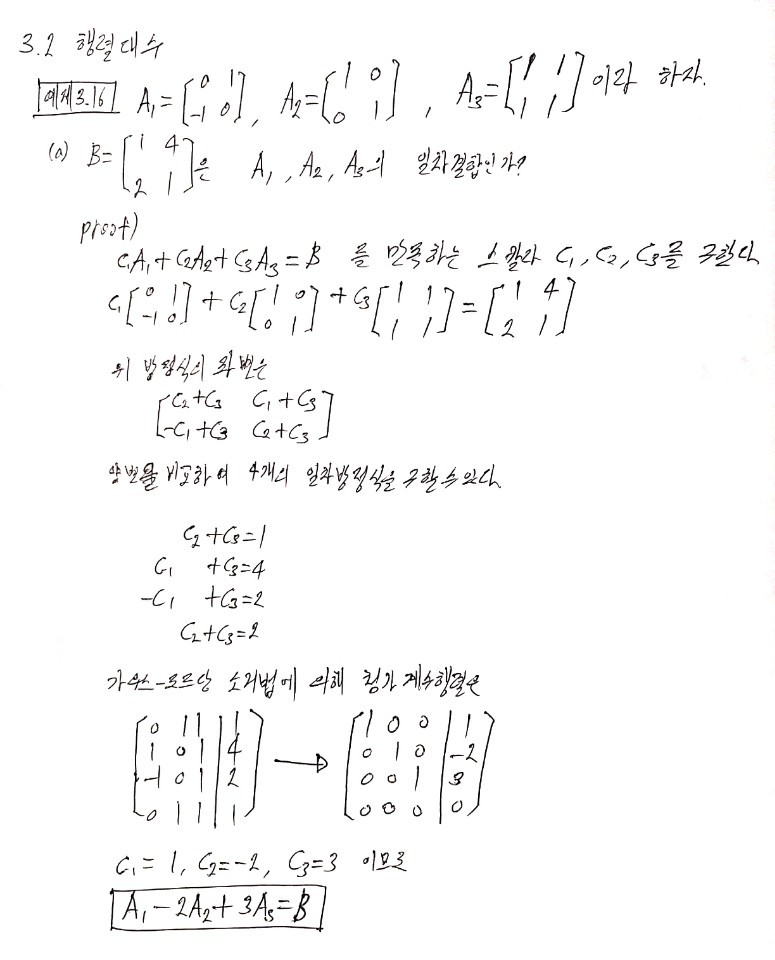 3.2 행렬대수
예제3.16 A₁=[0 1; -1 0], A₂=[1 0; 0 1], A₃=[1 1; 1 1]이라 하자.
(a) B=[1 4; 2 1]은 A₁, A₂, A₃의 일차결합인가?
proof)
C₁A₁+C₂A₂+C₃A₃=B 를 만족하는 스칼라 C₁, C₂, C₃를 구한다
C₁[0 1; -1 0]+C₂[1 0; 0 1]+C₃[1 1; 1 1]=[1 4; 2 1]
위 방정식의 좌변은
[C₂+C₃ C₁+C₃; -C₁+C₃ C₂+C₃]
양변을 비교하여 4개의 일차방정식을 구할 수 있다
C₂+C₃=1
C₁ +C₃=4
-C₁ +C₃=2
C₂+C₃=2
가우스-요르단 소거법에 의해 첨가계수행렬은
[0 1 1 | 1; 1 0 1 | 4; -1 0 1 | 2; 0 1 1 | 1] → [1 0 0 | 1; 0 1 0 | -2; 0 0 1 | 3; 0 0 0 | 0]
C₁=1, C₂=-2, C₃=3 이므로
A₁-2A₂+3A₃=B